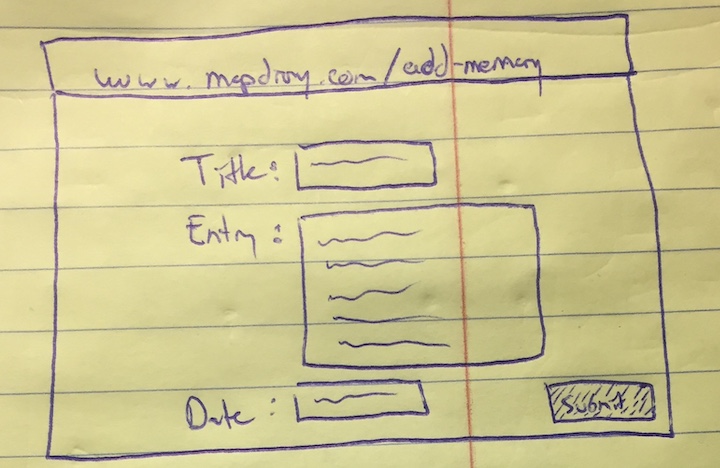 www.mapdiary.com/add-memory
Title:
Entry:
Date:
Submit